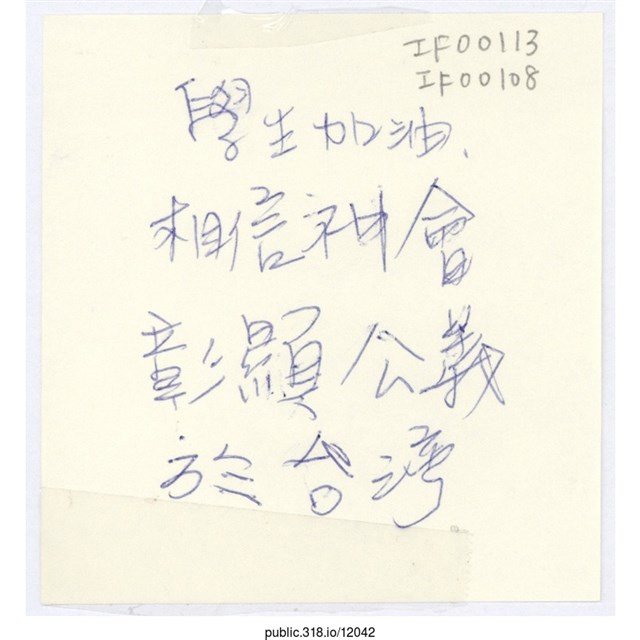 IF00113
IF00108
學生加油、
相信神會
彰顯公義
於台灣
public.318.io/12042